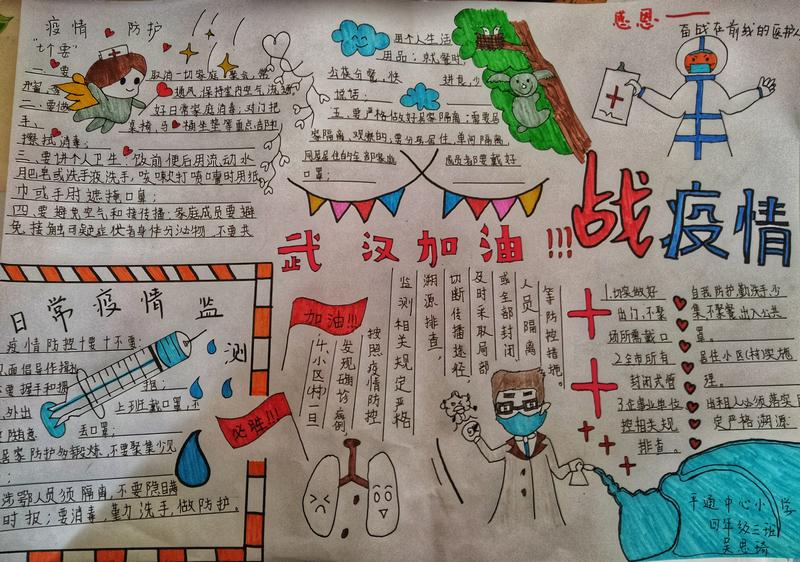 疫情防护
"七个要"
一、要
取消一切家庭聚会，常
开窗
通风,保持室内空气流通
二、要做
好日常家庭消毒,对门把
手、
桌椅、马桶坐垫等重点部位
擦拭消毒;
三、要讲个人卫生、饭前便后用流动水
月巴皂或洗手液洗手,咳嗽或打喷嚏时用纸
巾或手肘遮掩口鼻;
四、要避免空气和接传播:家庭成员要避
免接触可疑症状者身体分泌物,不要共
用个人生活
用品;就餐时
公筷分餐,快
进食,少
说话;
五、要严格做好居家隔离:需要居
家隔离、观察的,要分室居住,单间隔离,
同屋居住的全部家庭
成员都要戴好
口罩;
感恩——
奋战在前线的医护人
战疫情
武汉加油!!!
日常疫情监测
疫情防控十要十不要:
面倡导作揖,
不要握手和拥
抱;
外出
上班戴口罩,不
丢口罩;
居家防护勿熬,不要聚集少见
;
涉鄂人员须隔离,不要隐瞒
时报;要消毒,勤洗手,做防护。
加油!!!
必胜!!!
等防控措施。
人员隔离
或全部封闭
及时采取局部
切断传播途径,
溯源排查,
监测相关规定严格
按照疫情防控
发现确诊病例,
小区(村)一旦
1.切实做好
自我防护勤洗手,少
出门,不聚
集不聚餐出入公共
场所需戴口
罩。
2.全市所有
居住小区(村)实施
封闭式管
理。
3.企事业单位
出租人必须落实
控相关规
定严格溯源
排查。
平通中心小学
四年级三班
吴思琦